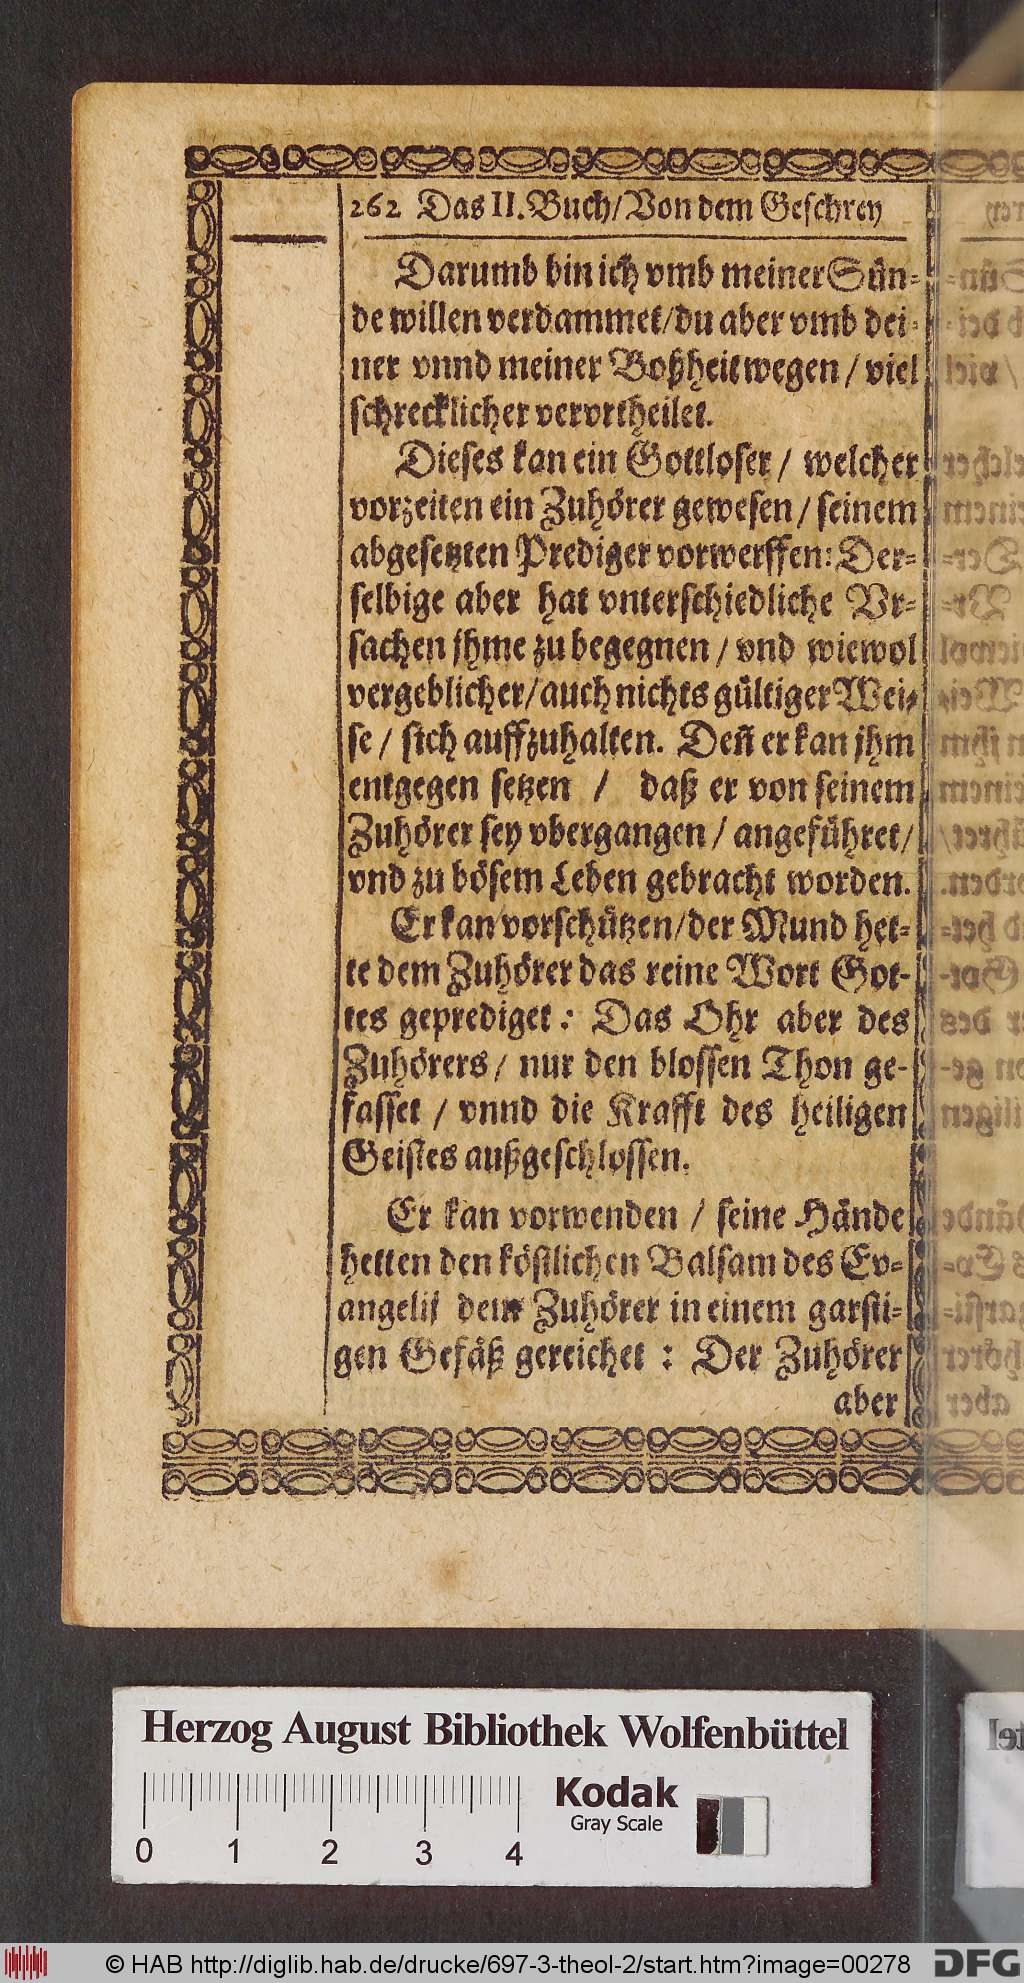 262 Das II. Buch/Von dem Geschrey
Darumb bin ich vmb meiner Sün-
de willen verdammet/du aber vmb dei-
ner vnnd meiner Boßheit wegen / viel
schrecklicher vervrtheilet.
Dieses kan ein Gottloser / welcher
vorzeiten ein Zuhörer gewesen / seinem
abgesetzten Prediger vorwerffen: Der-
selbige aber hat vnterschiedliche Vr-
sachen jhme zu begegnen / vnd wiewol
vergeblicher/auch nichts gültiger Wei-
se / sich auffzuhalten. Deñ er kan jhm
entgegen setzen / daß er von seinem
Zuhörer sey vbergangen / angeführet/
vnd zu bösem Leben gebracht worden.
Er kan vorschützen/der Mund het-
te dem Zuhörer das reine Wort Got-
tes geprediget: Das Ohr aber des
Zuhörers / nur den blossen Thon ge-
fasset / vnnd die Krafft des heiligen
Geistes außgeschlossen.
Er kan vorwenden / seine Hände
hetten den köstlichen Balsam des Ev-
angelij dem Zuhörer in einem garsti-
gen Gefäß gereichet : Der Zuhörer
aber
Herzog August Bibliothek Wolfenbüttel
0 1 2 3 4
Kodak
Gray Scale
© HAB http://diglib.hab.de/drucke/697-3-theol-2/start.htm?image=00278
DFG